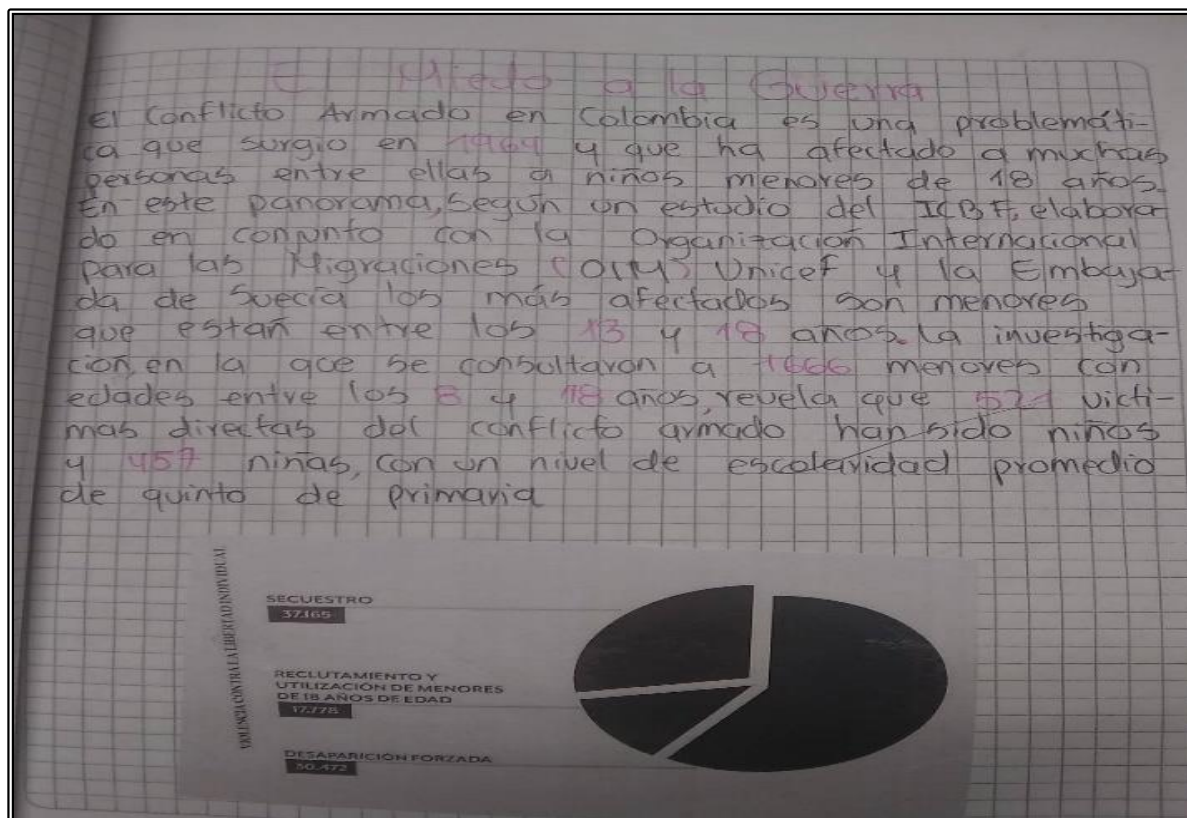 El Miedo a la Guerra
El Conflicto Armado en Colombia es una problemáti-
ca que surgio en 1964 y que ha afectado a muchas
personas entre ellas a niños menores de 18 años.
En este panorama, Según un estudio del ICBF, elabora
do en conjunto con la Organización Internacional
para las Migraciones (OIM) Unicef y la Embaja-
da de Suecia los más afectados son menores
que están entre los 13 y 18 años. La investiga-
ción, en la que se consultaron a menores con
edades entre los 8 y 18 años, revela que 521 victi-
mas directas del conflicto armado han sido niños
y 457 niñas, con un nivel de escolaridad promedio
de quinto de primaria
VIOLENCIA CONTRA LA LIBERTAD INDIVIDUAL
SECUESTRO
37.165
RECLUTAMIENTO Y
UTILIZACIÓN DE MENORES
DE 18 AÑOS DE EDAD
17.778
DESAPARICIÓN FORZADA
80.472